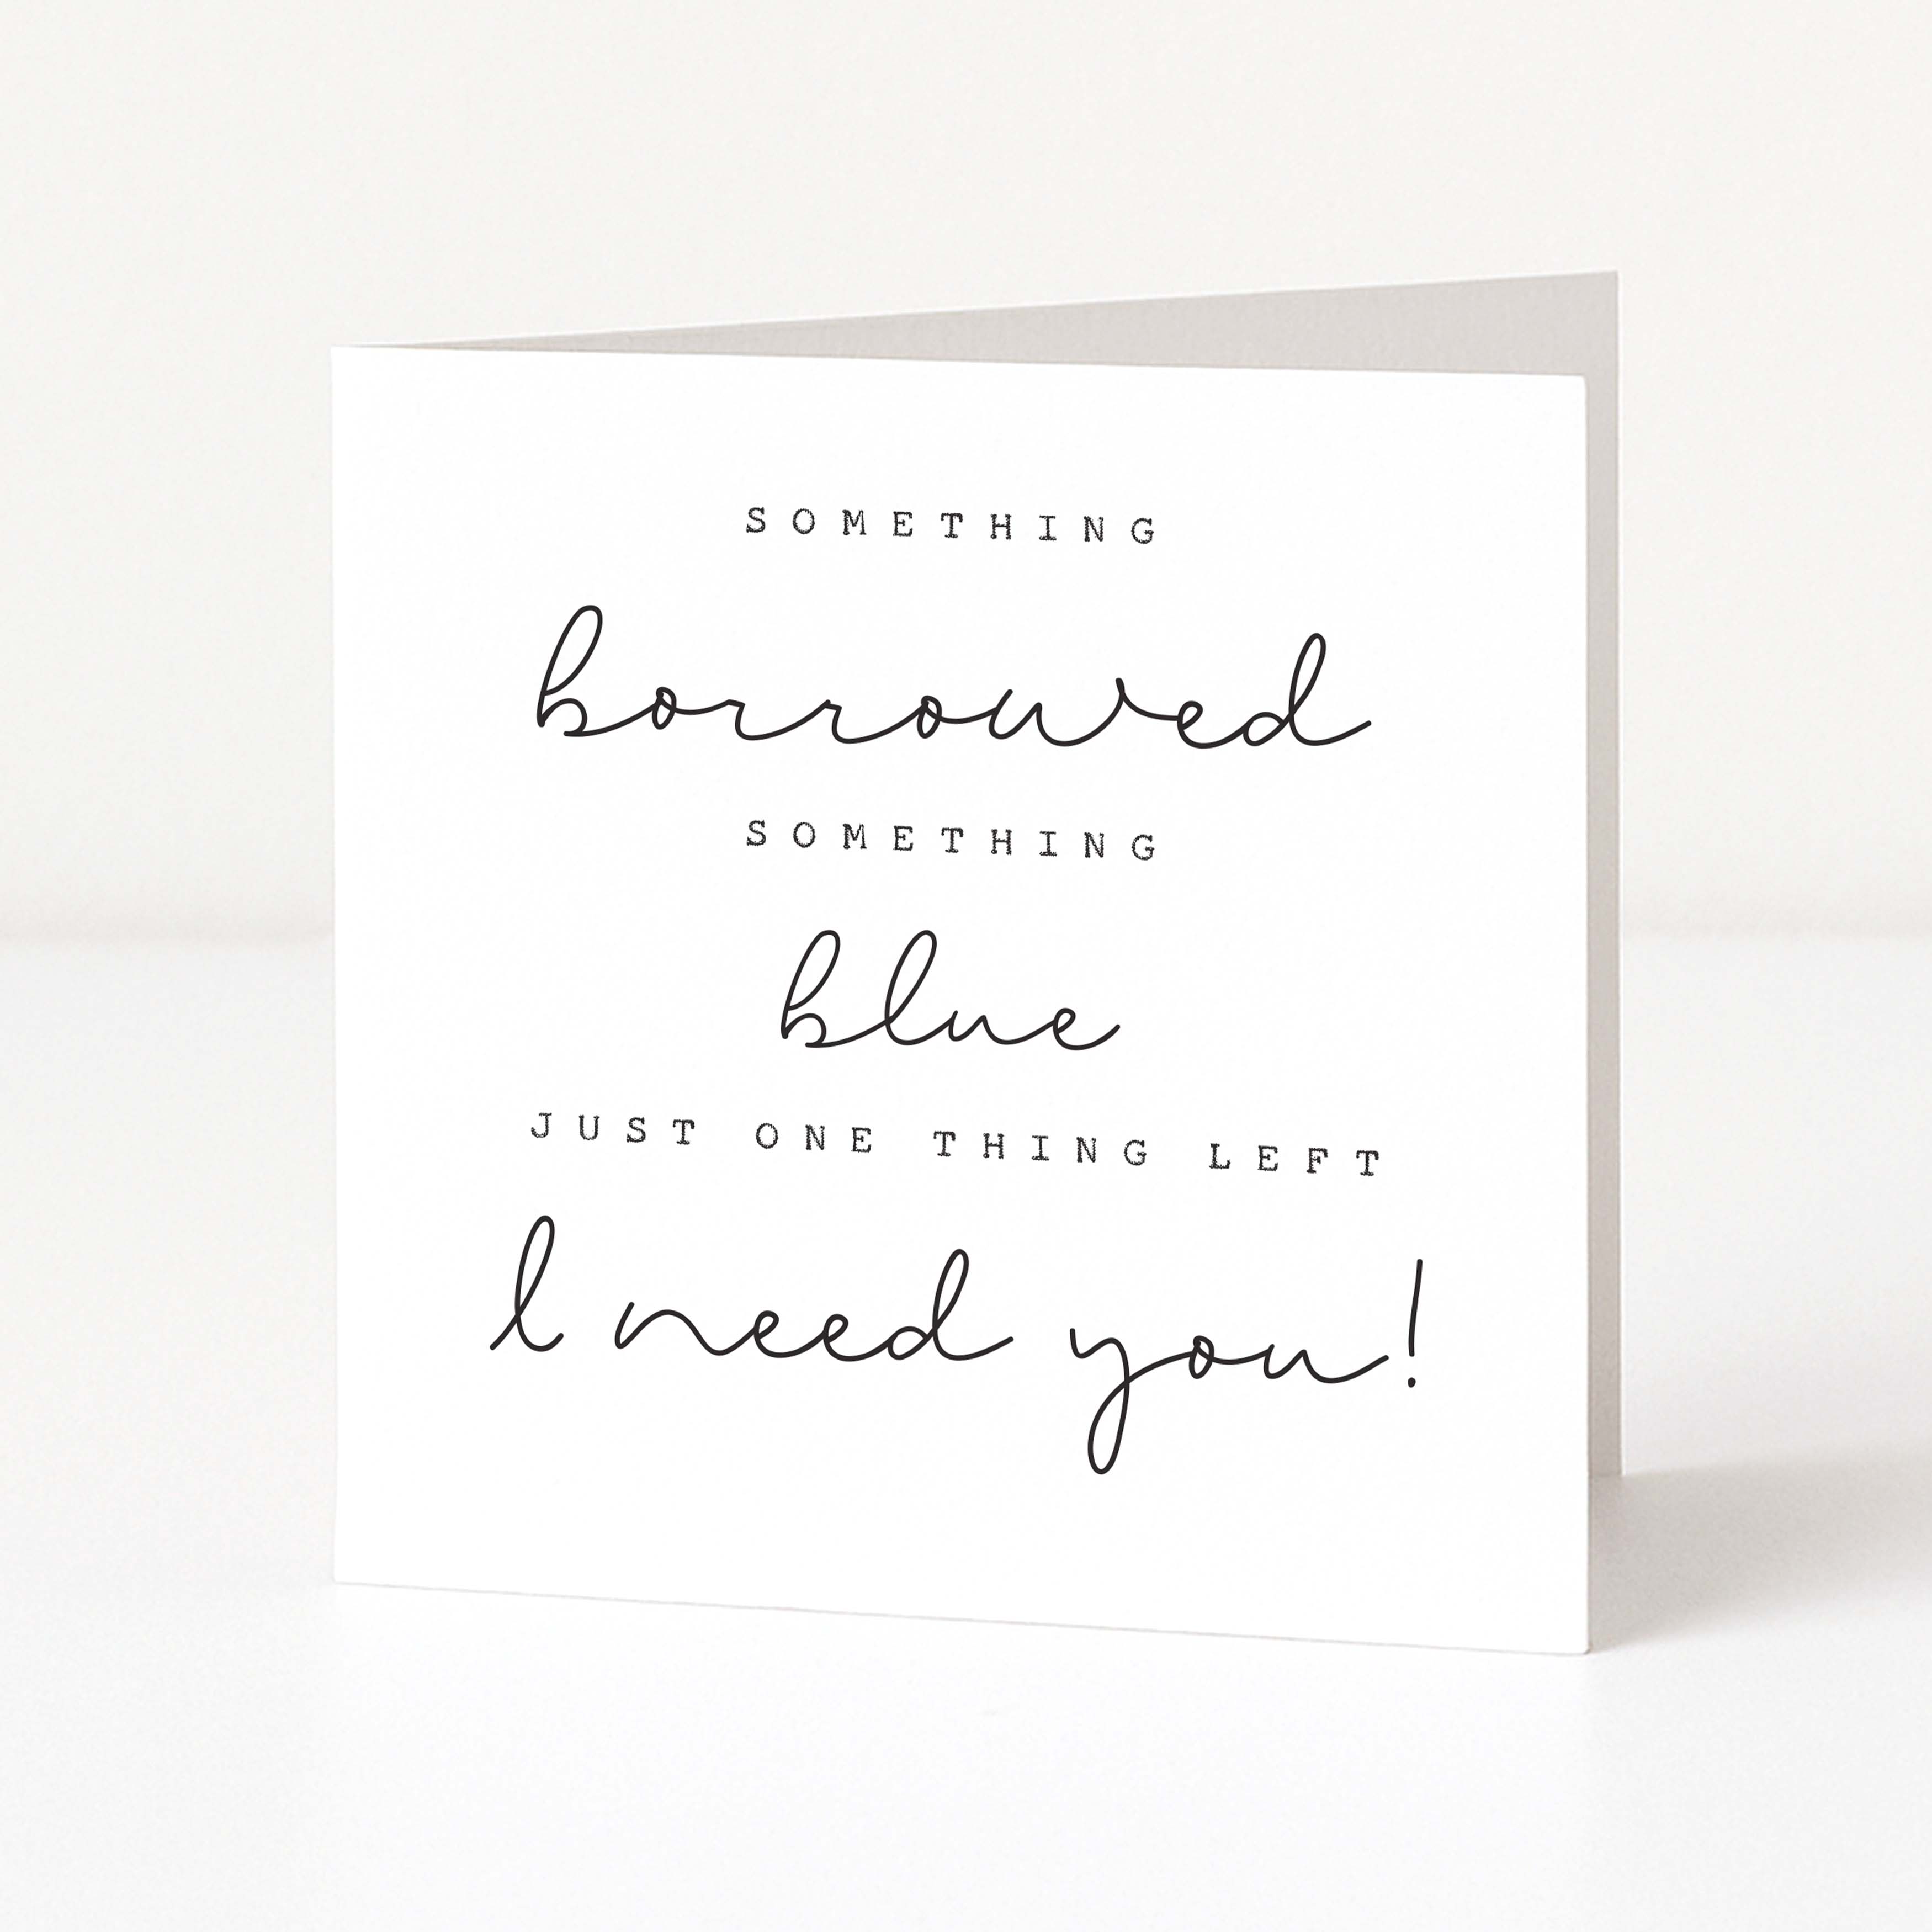 SOMETHING
borrowed
SOMETHING
blue
JUST ONE THING LEFT
I need you!